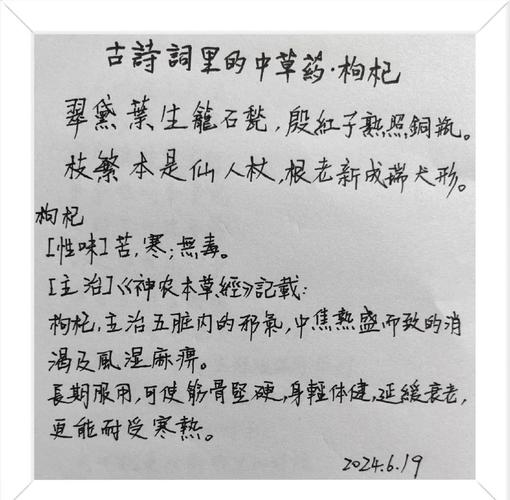 古詩詞里的中草药·枸杞
翠黛葉生籠石甃,殷紅子熟照銅瓶。
枝繁本是仙人杖,根老新成瑞犬形。
枸杞
[性味]苦,寒;無毒。
[主治]《神农本草經》記載:
枸杞,主治五脏内的邪氣,中焦熱盛而致的消
渴及風湿麻痹。
長期服用,可使筋骨堅硬,身輕体健,延緩衰老,
更能耐受寒熱。
2024.6.19